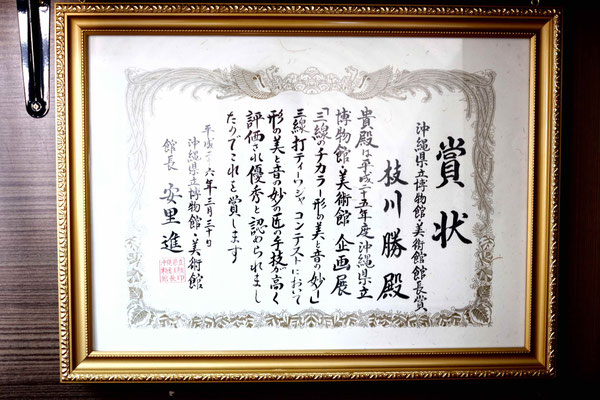 賞状
沖縄県立博物館・美術館館長賞
枝川 勝 殿
貴殿は平成二十五年度沖縄県立
博物館・美術館 企画展
「三線のチカラ―形の美と音の妙―」
三線打ティーワジャコンテストにおいて
形の美と音の妙の匠の手技が高く
評価され優秀と認められまし
たのでこれを賞します
平成二十六年三月三十日
沖縄県立博物館・美術館
館長 安里 進